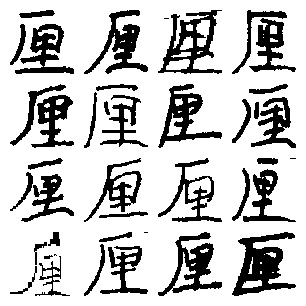 厘厘厘厘
厘厘厘厘
厘厘厘厘
厘厘厘厘